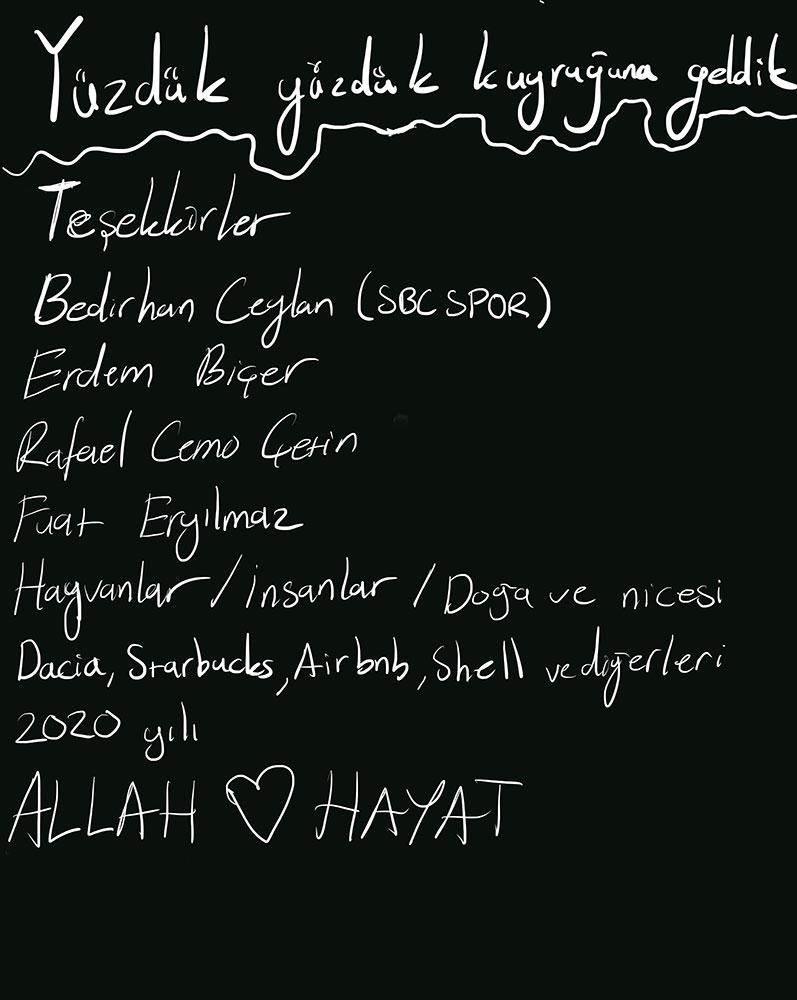 Yüzdük yüzdük kuyruğuna geldik
Teşekkürler
Bedirhan Ceylan (SBC SPOR)
Erdem Biçer
Rafael Cemo Çetin
Fuat Eryılmaz
Hayvanlar / insanlar / Doğa ve nicesi
Dacia, Starbucks, Airbnb, Shell ve diğerleri
2020 yılı
ALLAH ♡ HAYAT